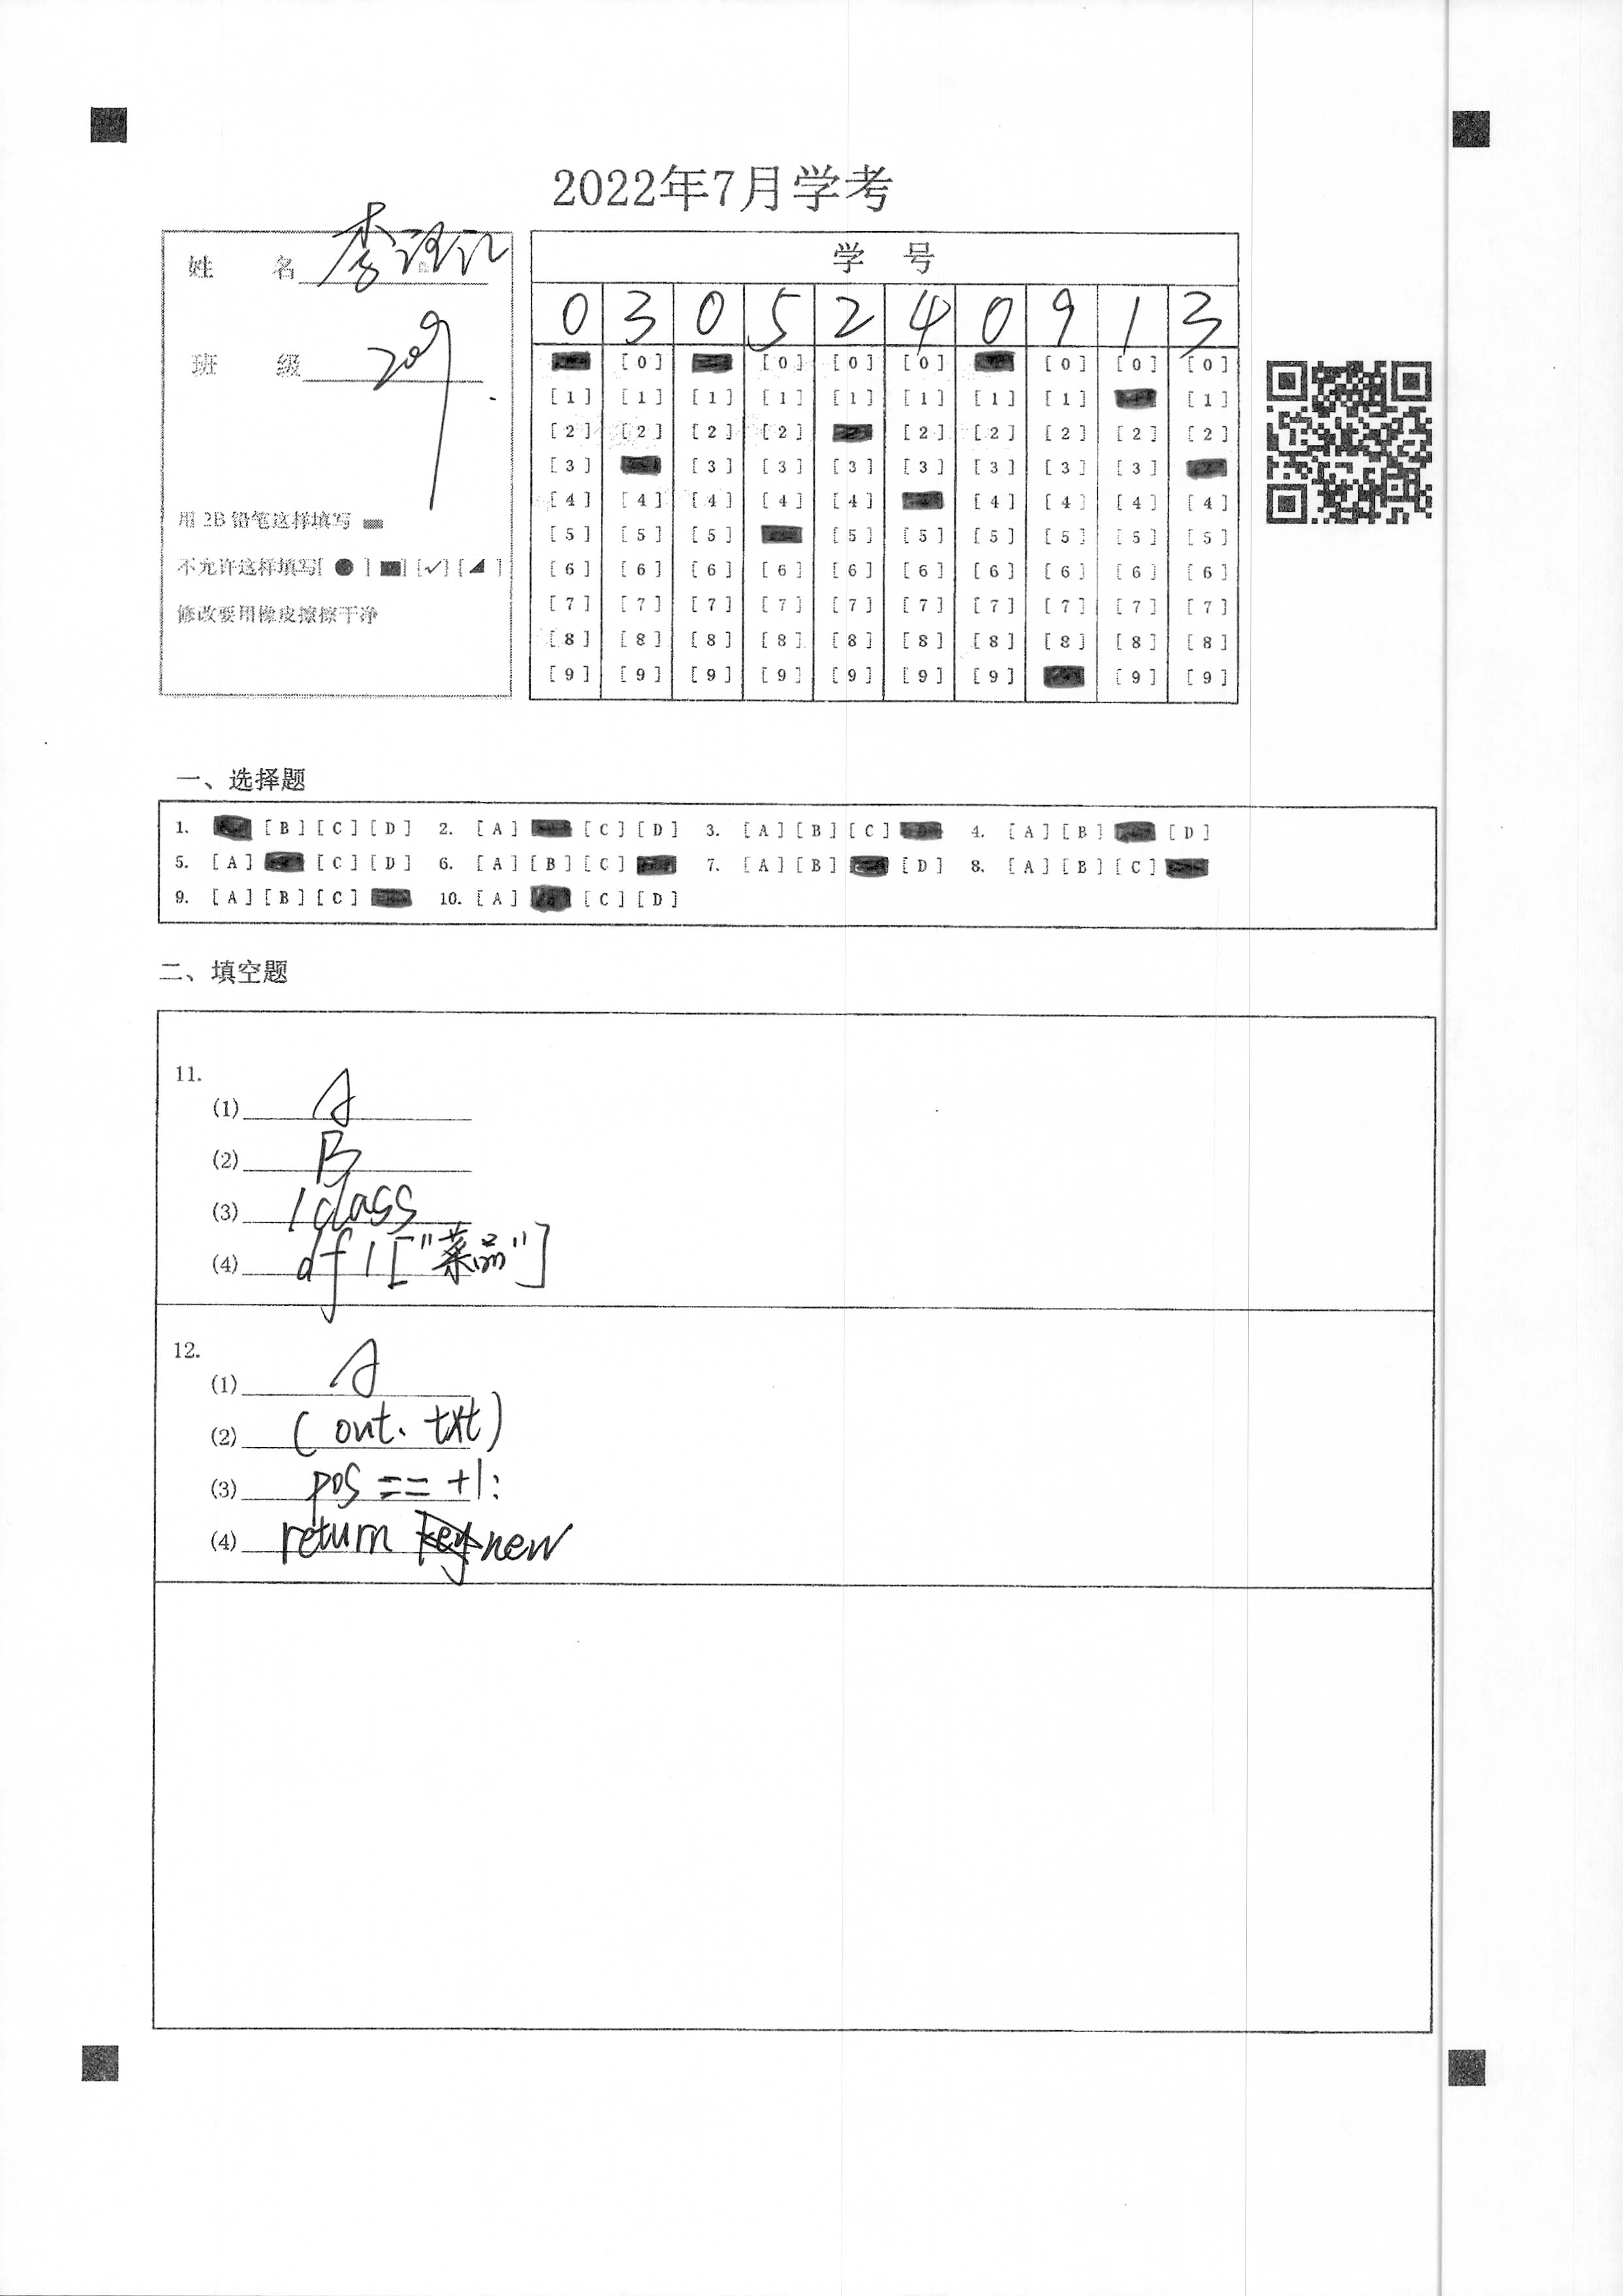 2022年7月学考
姓 名 李
班 级 209
用 2B 铅笔这样填写
不允许这样填写[ ● ] [✓] [◢ ]
修改要用橡皮擦擦干净
学 号
0 3 0 5 2 4 0 9 1 3
[0] [0] [0] [0] [0] [0] [0]
[1] [1] [1] [1] [1] [1] [1] [1] [1]
[2] [2] [2] [2] [2] [2] [2] [2] [2]
[3] [3] [3] [3] [3] [3] [3] [3]
[4] [4] [4] [4] [4] [4] [4] [4] [4]
[5] [5] [5] [5] [5] [5] [5] [5] [5]
[6] [6] [6] [6] [6] [6] [6] [6] [6] [6]
[7] [7] [7] [7] [7] [7] [7] [7] [7] [7]
[8] [8] [8] [8] [8] [8] [8] [8] [8] [8]
[9] [9] [9] [9] [9] [9] [9] [9] [9]
一、选择题
1. [B] [C] [D] 2. [A] [C] [D] 3. [A] [B] [C] 4. [A] [B] [D]
5. [A] [C] [D] 6. [A] [B] [C] 7. [A] [B] [D] 8. [A] [B] [C]
9. [A] [B] [C] 10. [A] [C] [D]
二、填空题
11.
(1) A
(2) B
(3) 1class
(4) df1["菜品"]
12.
(1) A
(2) (out.txt)
(3) pos == +1:
(4) return key new